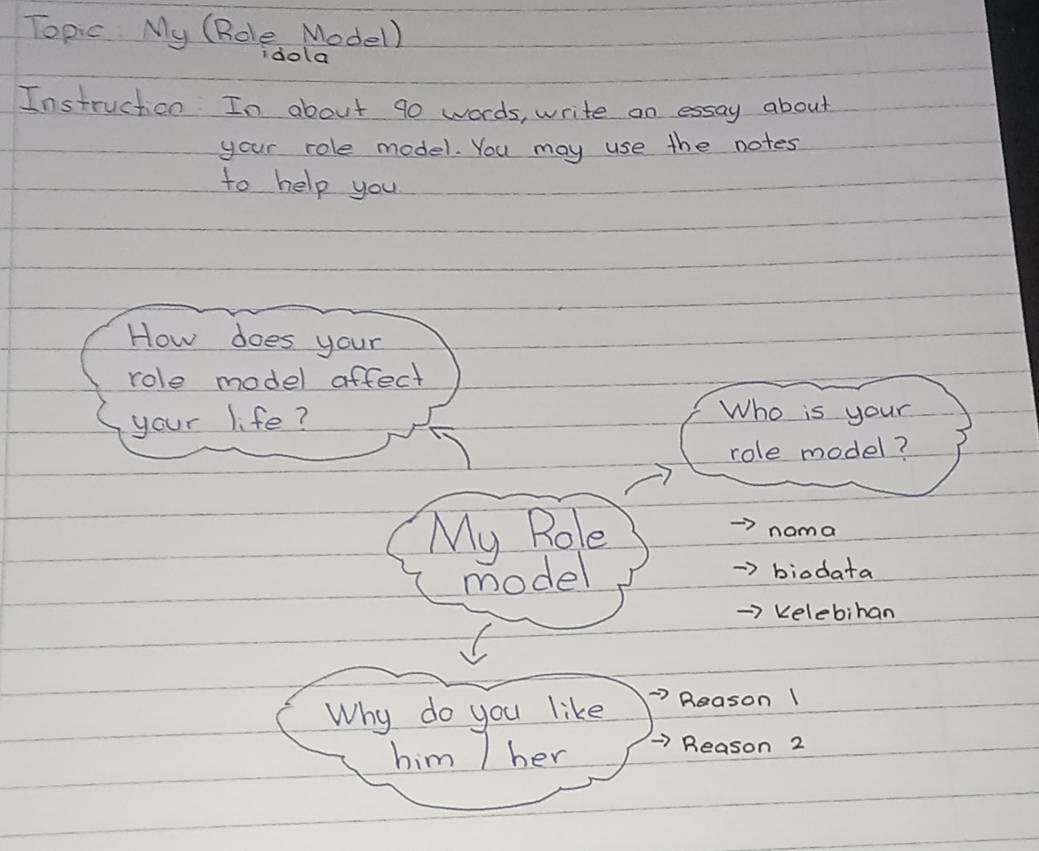 Topic: My (Role Model)
idola
Instruction: In about 90 words, write an essay about
your role model. You may use the notes
to help you
How does your
role model affect
your life?
Who is your
role model?
My Role
model
→ nama
→ biodata
→ kelebihan
Why do you like
him / her
→ Reason 1
→ Reason 2